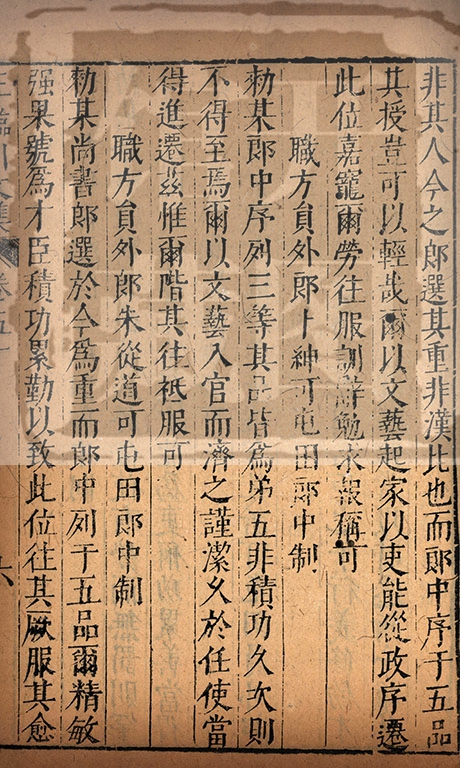 非其人今之郎選其重非漢比也而郎中序于五品
其授豈可以輕哉爾以文藝起家以吏能從政序遷
此位嘉寵爾勞往服訓辭勉求報稱可
職方員外郎卜紳可屯田郎中制
勑某郎中序列三等其品皆為弟五非積功久次則
不得至焉爾以文藝入官而濟之謹潔久於任使當
得進遷茲惟爾階其往祗服可
職方員外郎朱從道可屯田郎中制
勑某尚書郎選於今為重而郎中列于五品爾精敏
强果號為才臣積功累勤以致此位往其厥服其愈
王臨川文集 卷五十 六